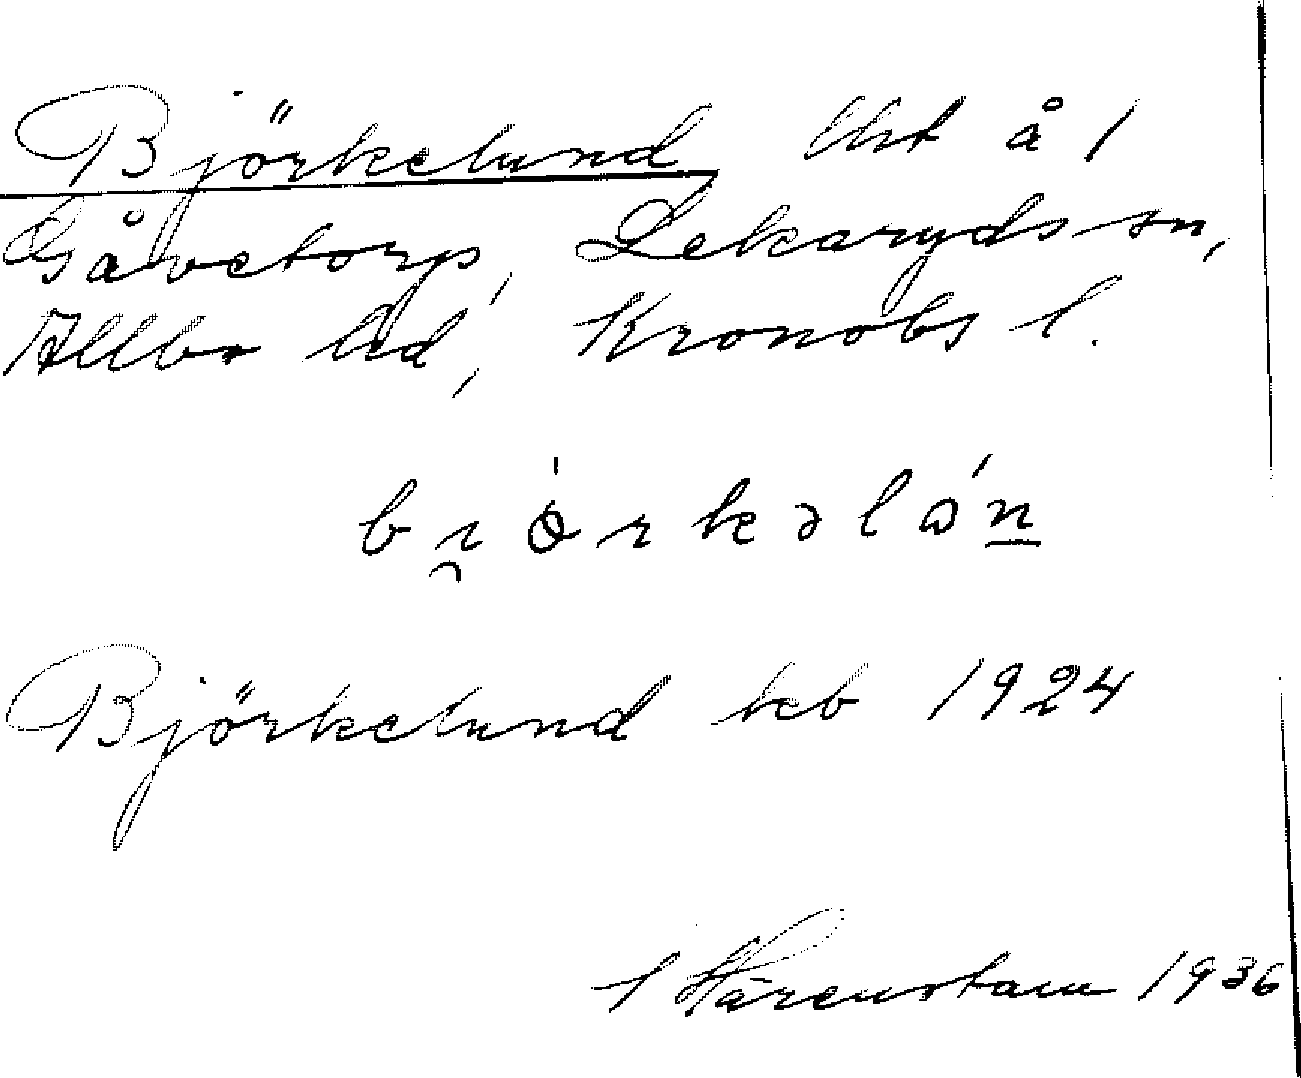 Björkelund lht å 1
Gåvetorp, Lekaryds sn,
Allbo hd, Kronobs l.
bi̯ǿrkəlɷ́n
Björkelund keb 1924
Härenstam 1936